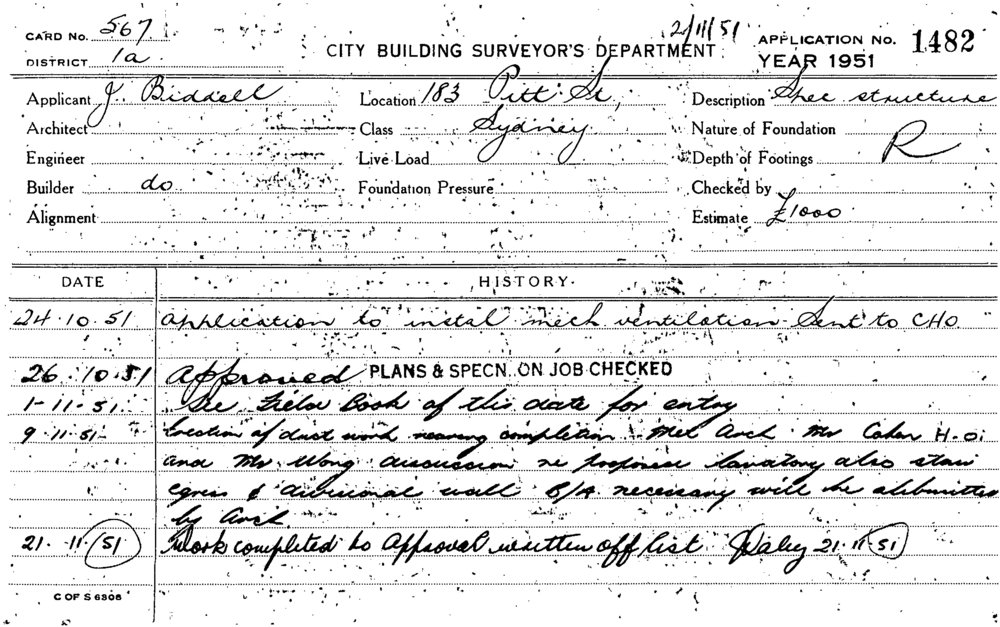 2/11/51
CARD No. 567
CITY BUILDING SURVEYOR'S DEPARTMENT
APPLICATION No. 1482
DISTRICT 1a
YEAR 1951
Applicant J. Biddell Location 183 Pitt St, Description Spec structure
Architect Class Sydney Nature of Foundation R
Engineer Live Load Depth of Footings
Builder do Foundation Pressure Checked by
Alignment Estimate £1000
DATE HISTORY
24.10.51 Application to instal mech ventilation Sent to CHO
26.10.51 Approved PLANS & SPECN. ON JOB CHECKED
1-11-51 See Field Book of this date for entry
9.11.51- Erection of duct work nearing completion Met Arch Mr Cohen H.O.
and Mr Wong discussion re proposed lavatory also stair
egress & divisional wall B/A necessary will be submitted
by Arch
21.11.51 Work completed to Approval written off list 21.11.51
C OF S 6308